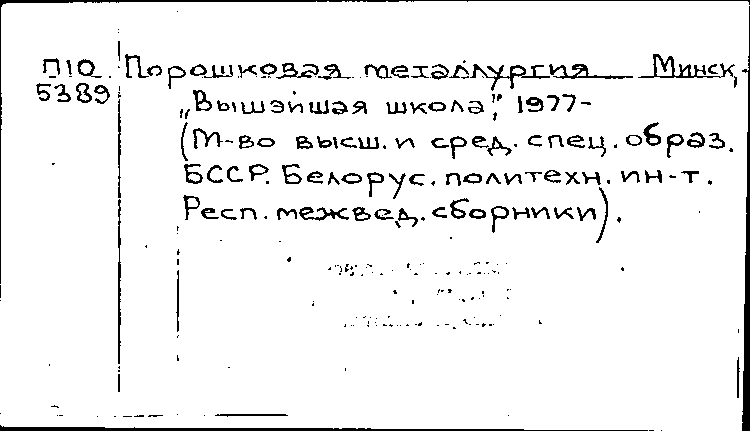 П10 Порошковая металлургия Минск,
5389 „Вышэйшая школа", 1977-
(М-во высш. и сред. спец. образ.
БССР. Белорус. политехн. ин-т.
Респ. межвед. сборники).